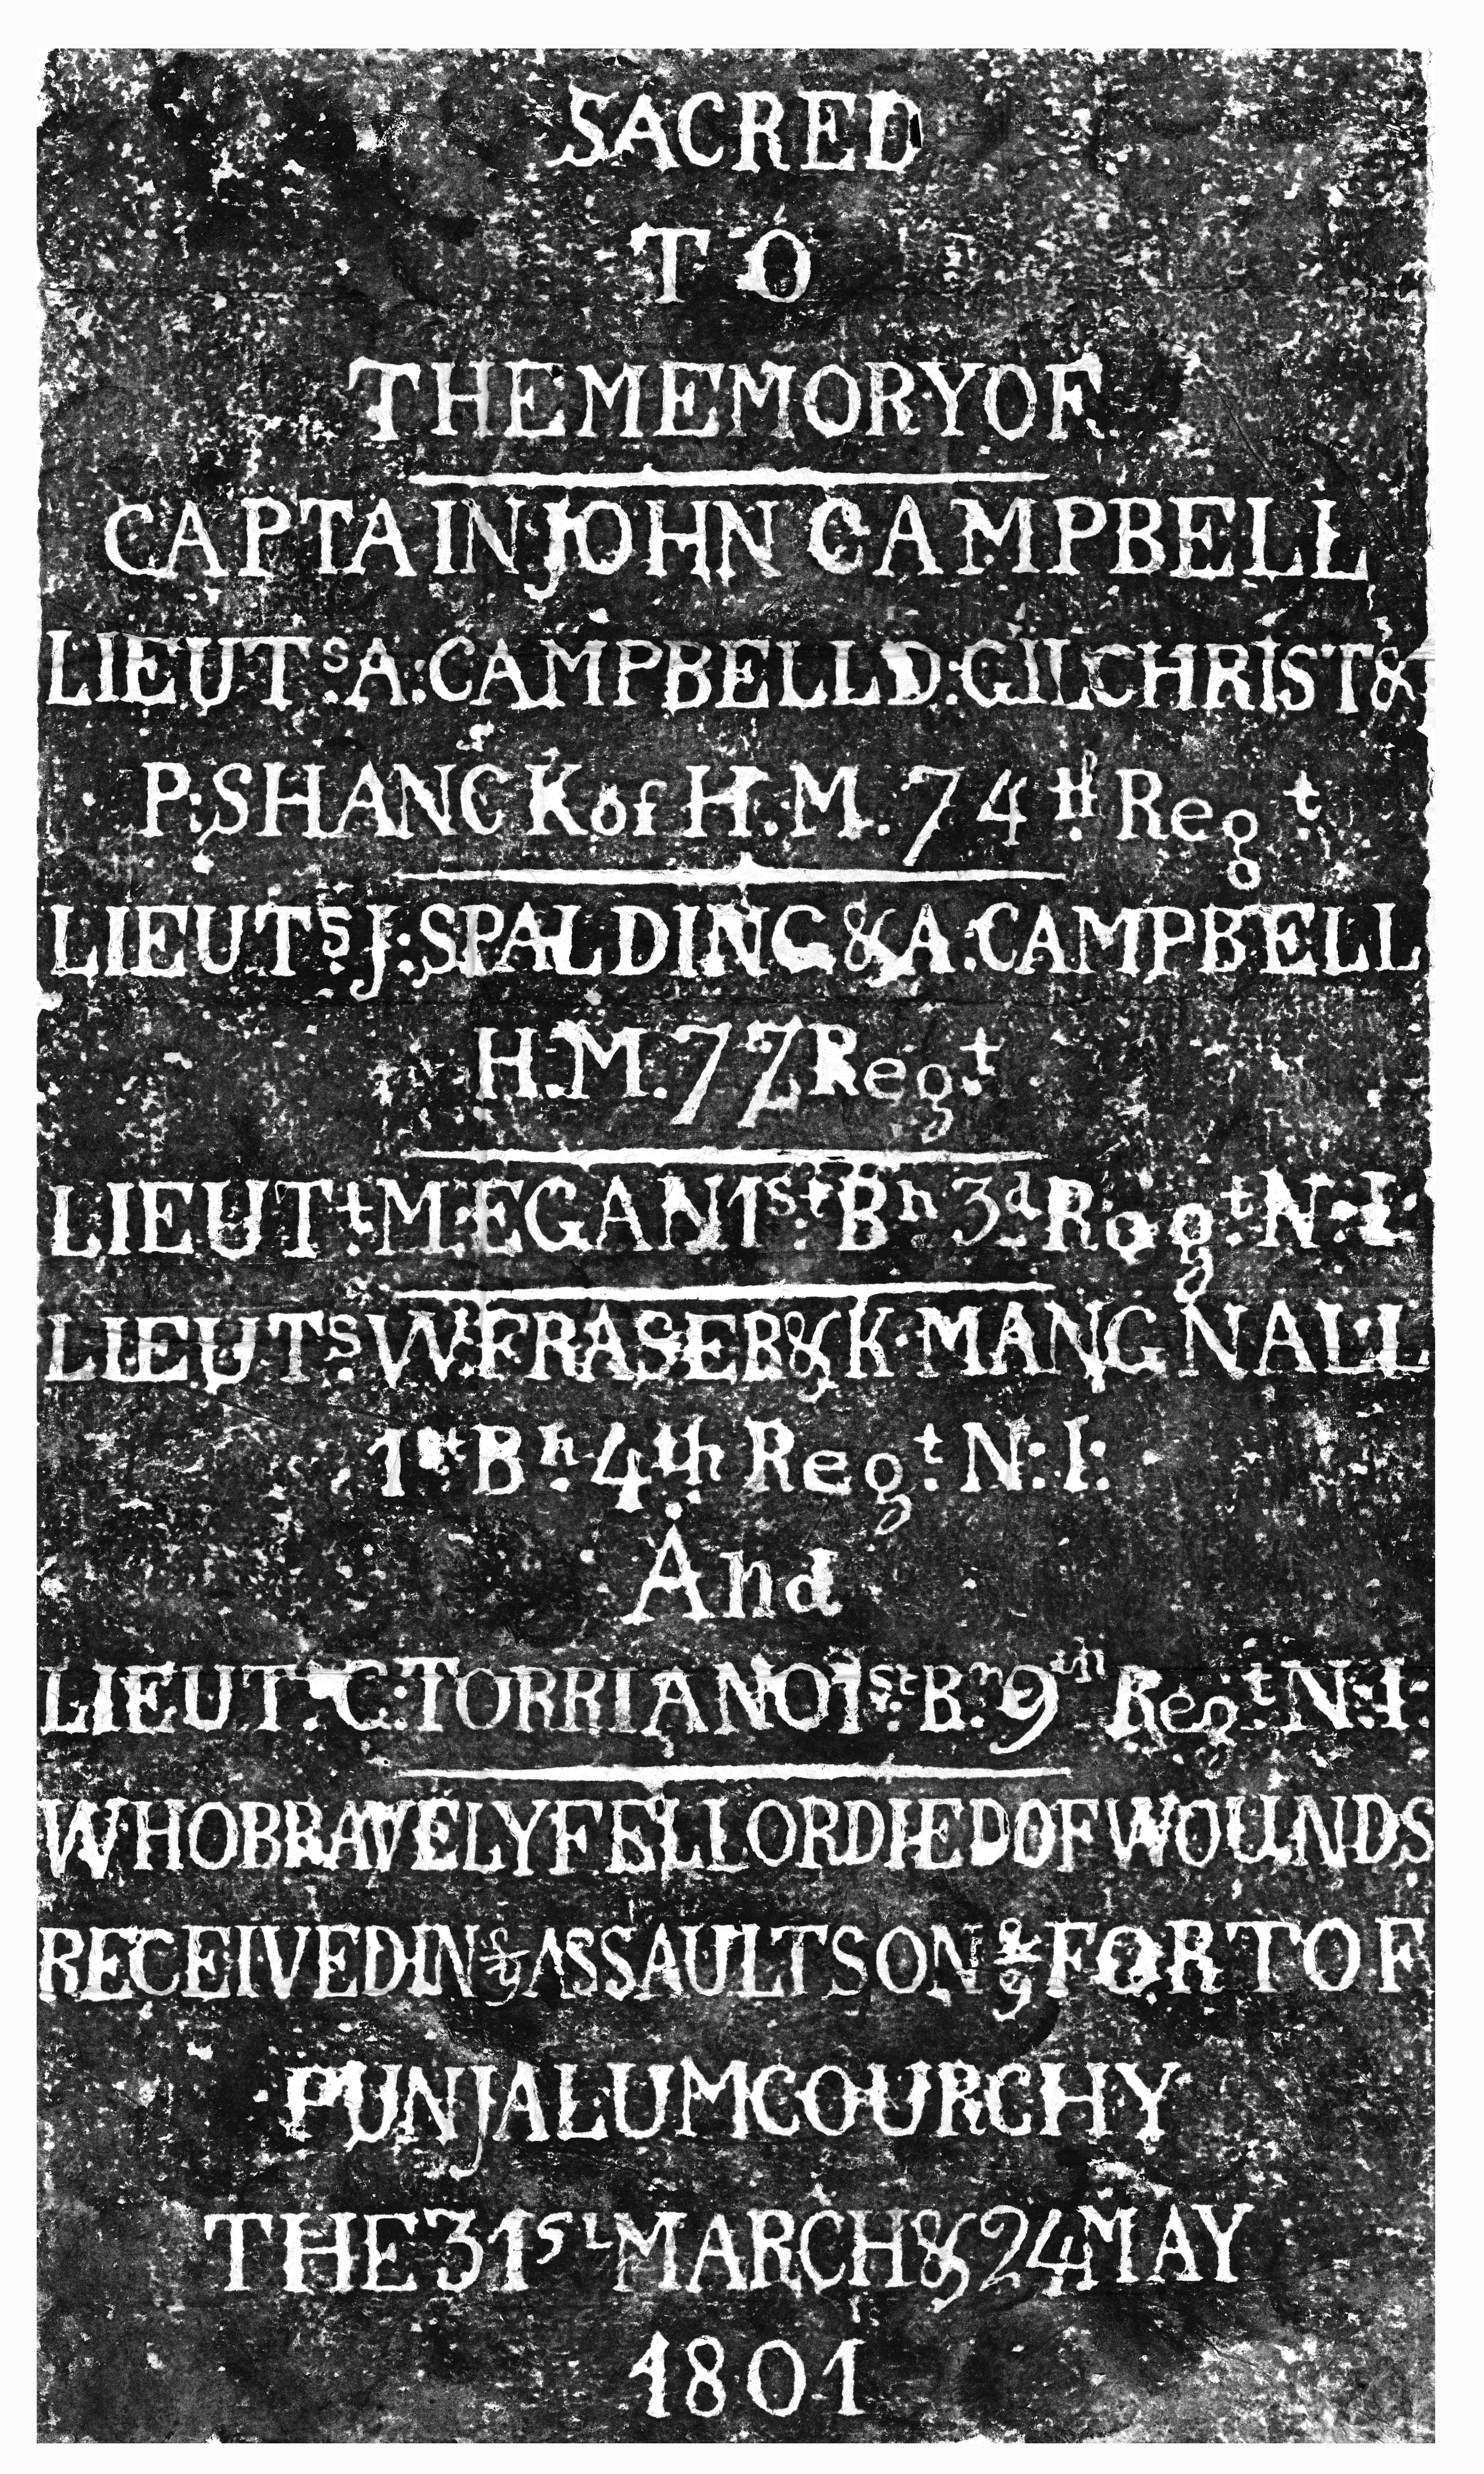 SACRED
TO
THE MEMORY OF
CAPTAIN JOHN CAMPBELL
LIEUTs. A: CAMPBELL D: GILCHRIST &
P: SHANCK of H. M. 74th Regt
LIEUTs. J: SPALDING & A: CAMPBELL
H. M. 77 Regt
LIEUTt: M: EGAN 1st: Bn 3d Regt: N: I:
LIEUTs. W: FRASER & K. MANGNALL
1st Bn. 4th Regt. N: I:
And
LIEUT: C: TORRIANO 1st: Bn. 9th Regt: N: I:
WHO BRAVELY FELL OR DIED OF WOUNDS
RECEIVED IN ye ASSAULTS ON ye FORT OF
PUNJALUMCOURCHY
THE 31st MARCH & 24 MAY
1801